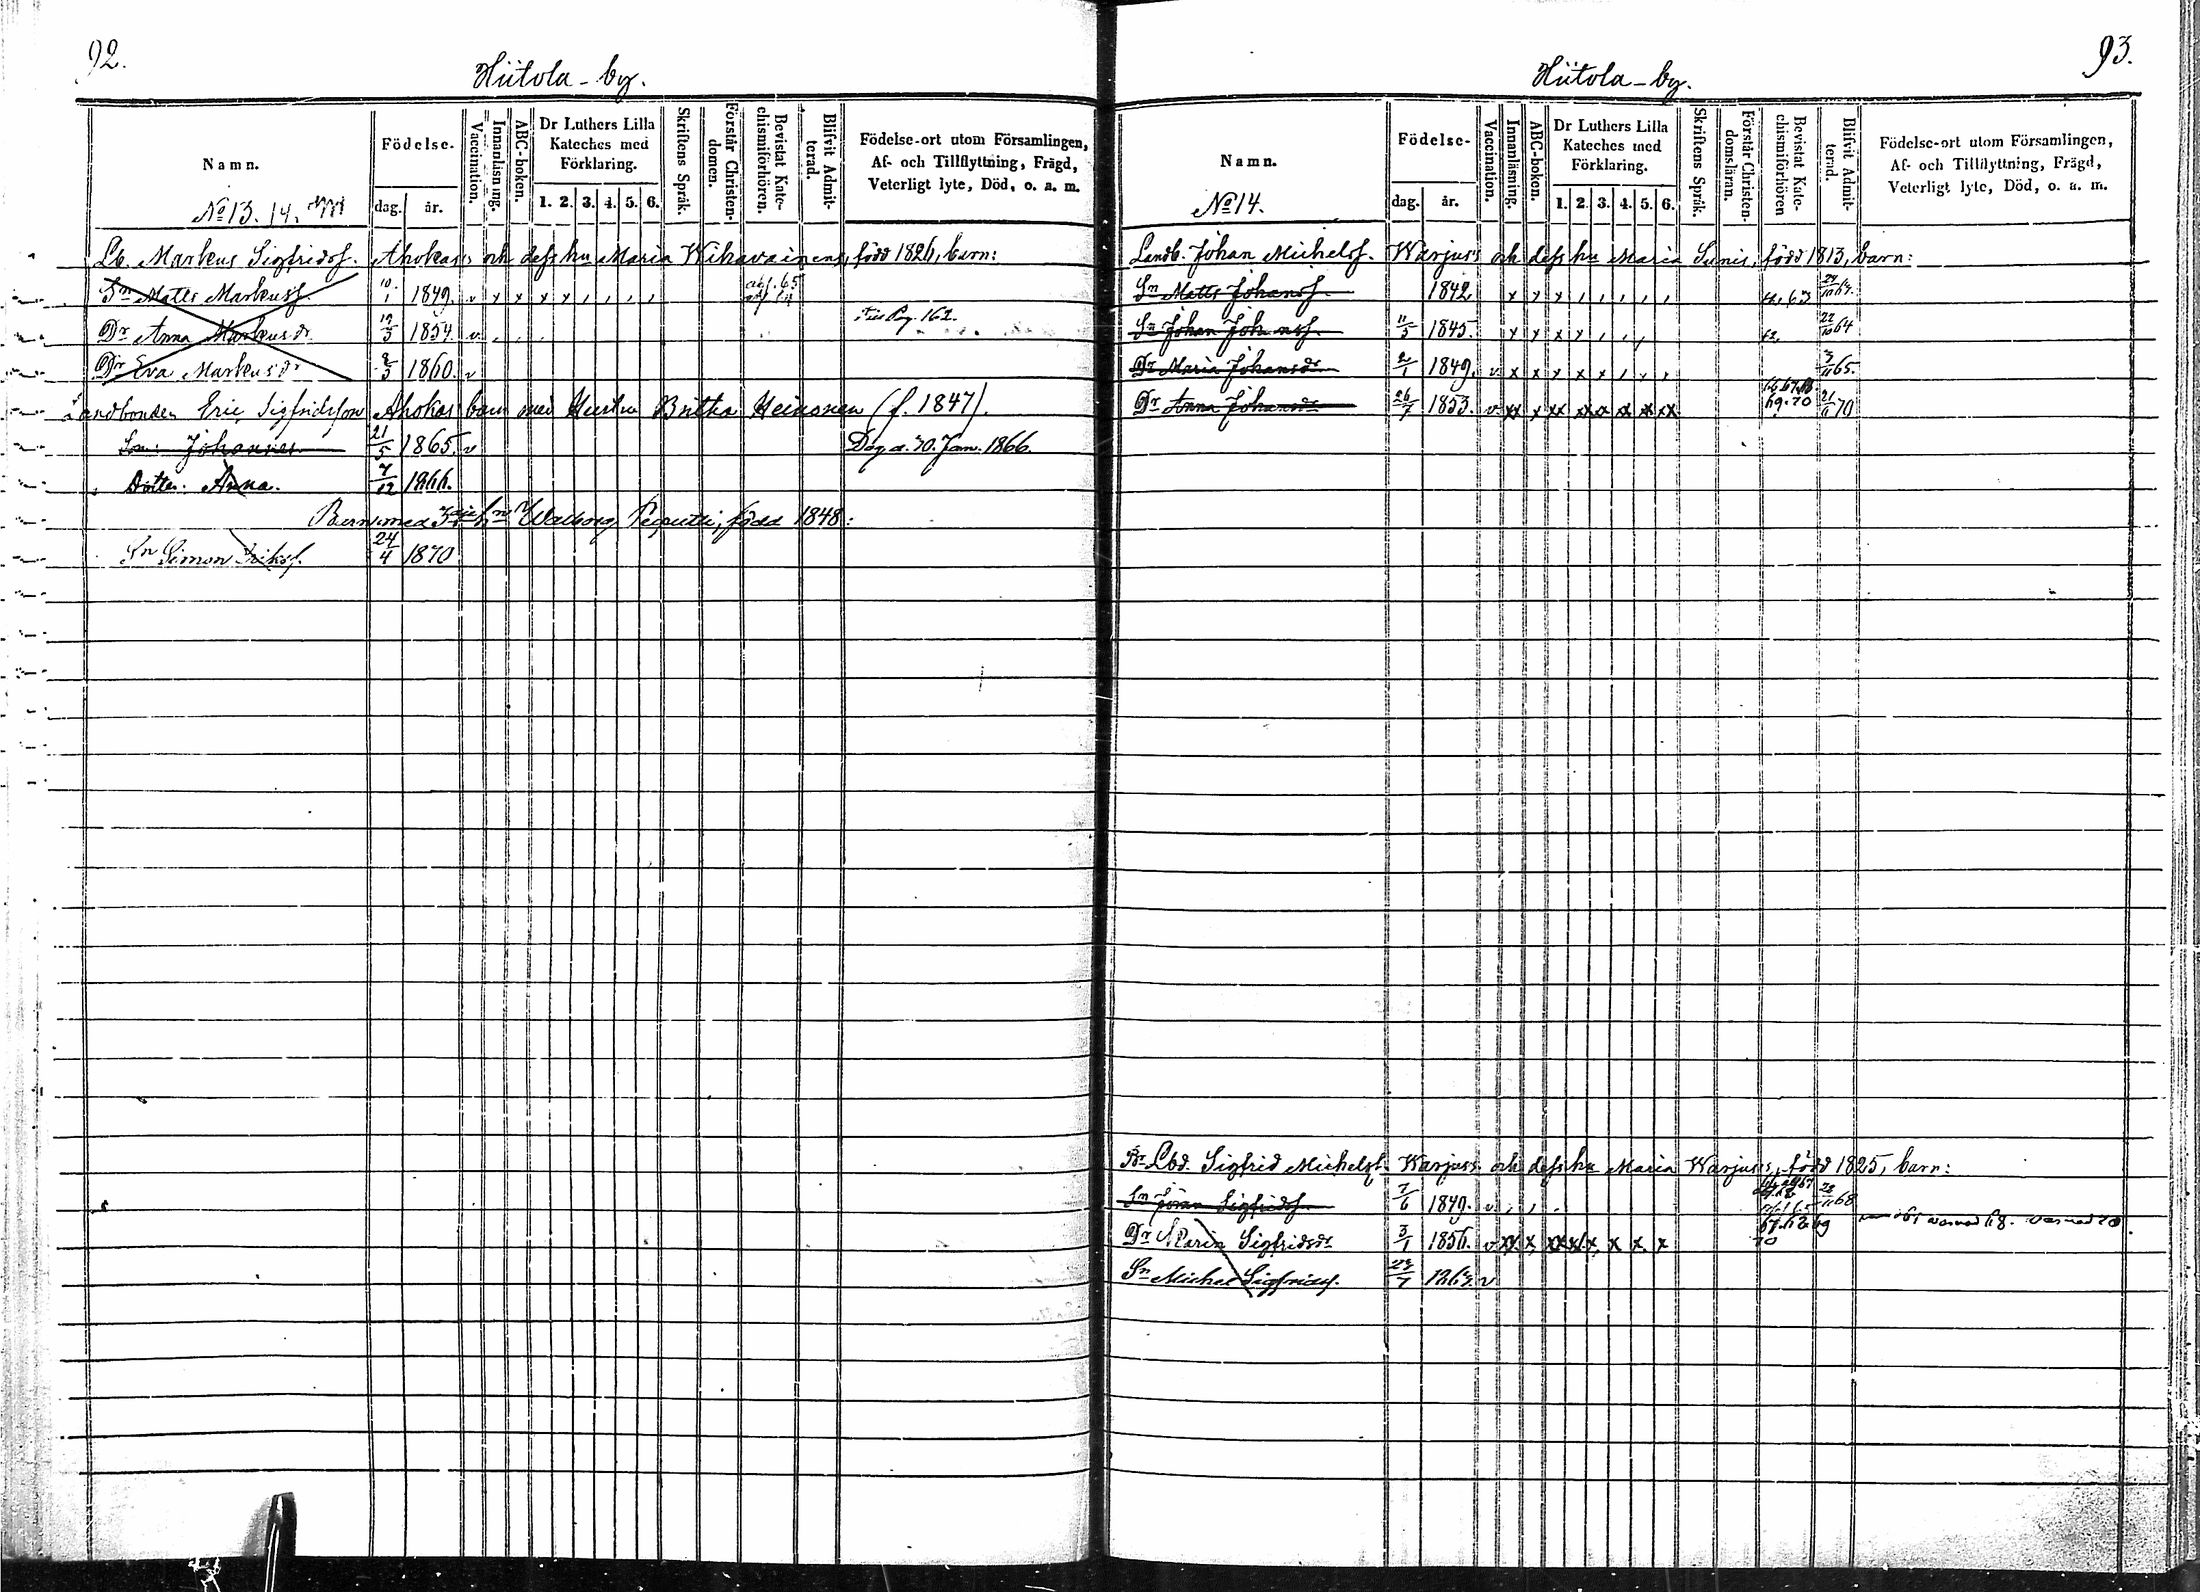 92.
Hiitola-by.
Namn.
Födelse.
dag.
år.
Vaccination.
Innanläsning.
ABC-boken.
Dr Luthers Lilla
Kateches med
Förklaring.
1. 2. 3. 4. 5. 6.
Skriftens Språk.
Förstår Christen-
domen.
Bevistat Kate-
chismiförhören.
Blifvit Admit-
terad.
Födelse-ort utom Församlingen,
Af- och Tillflyttning, Frägd,
Veterligt lyte, Död, o. a. m.
No 13. 14.
Lb. Markus Sigfridsf. Ahokas och dess hu Maria Wihavainen, född 1826, barn:
Sn Matts Markusf. 10/1 1849. v x x x x
Dr Anna Markusdr 1854. v Pag. 162.
Dr Eva Markusdr 1860. v
Landbonden Eric Sigfridsson Ahokas barn med Hustru Britha Heinonen (f. 1847).
Son: Johannes 21/5 1865. v Dog d. 30. Jan. 1866.
Dotter: Anna. 7/12 1866.
Barn med Walborg född 1848:
Sn Simon Eriksf. 24/4 1870
93.
Hiitola-by.
Namn.
Födelse-
dag.
år.
Vaccination.
Innanläsning.
ABC-boken.
Dr Luthers Lilla
Kateches med
Förklaring.
1. 2. 3. 4. 5. 6.
Skriftens Språk.
Förstår Christen-
domsläran.
Bevistat Kate-
chismiförhören
Blifvit Admit-
terad.
Födelse-ort utom Församlingen,
Af- och Tillflyttning, Frägd,
Veterligt lyte, Död, o. a. m.
No 14.
Landb. Johan Michelsf. Warjus och dess hu Maria Sunis, född 1813, barn:
Sn Matts Johansf. 1842. x x x
Sn Johan Johansf. 11/5 1845. x x x x 22/10 64
Dr Maria Johansdr 2/1 1849. v x x x x x 3/11 65.
Dr Anna Johansdr 26/7 1853. v xx x xx xx xx xx xx xx 69.70 21/11 70
Br Lbd. Sigfrid Michelsf. Warjus och dess hu Maria Warjus, född 1825, barn:
Sn Göran Sigfridsf. 7/6 1849. v 68
Dr Maria Sigfridsdr 3/1 1856. v xx x xx xx x x x x 67.68.69 70
Sn Michel Sigfridsf. v